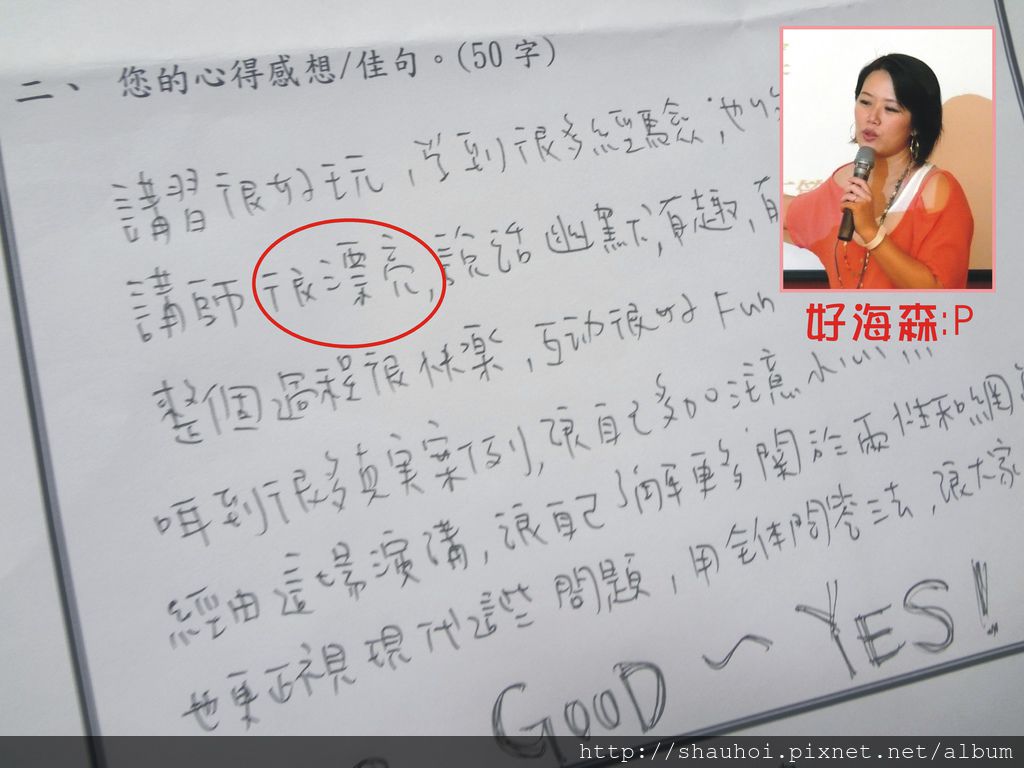 二、 您的心得感想/佳句。(50字)
講習很好玩,学到很多經驗,也
講師很漂亮,說話幽默,有趣,有
整個過程很快樂,互动很好 Fun
好海森:P
到很多真实案例,讓自己多加注意.小心!!!
經由這場演講,讓自己了解更多關於兩性和網
也更正視現代這些問題,用全体問卷方法,讓大家
GOOD ~ YES!
http://shauhoi.pixnet.net/album